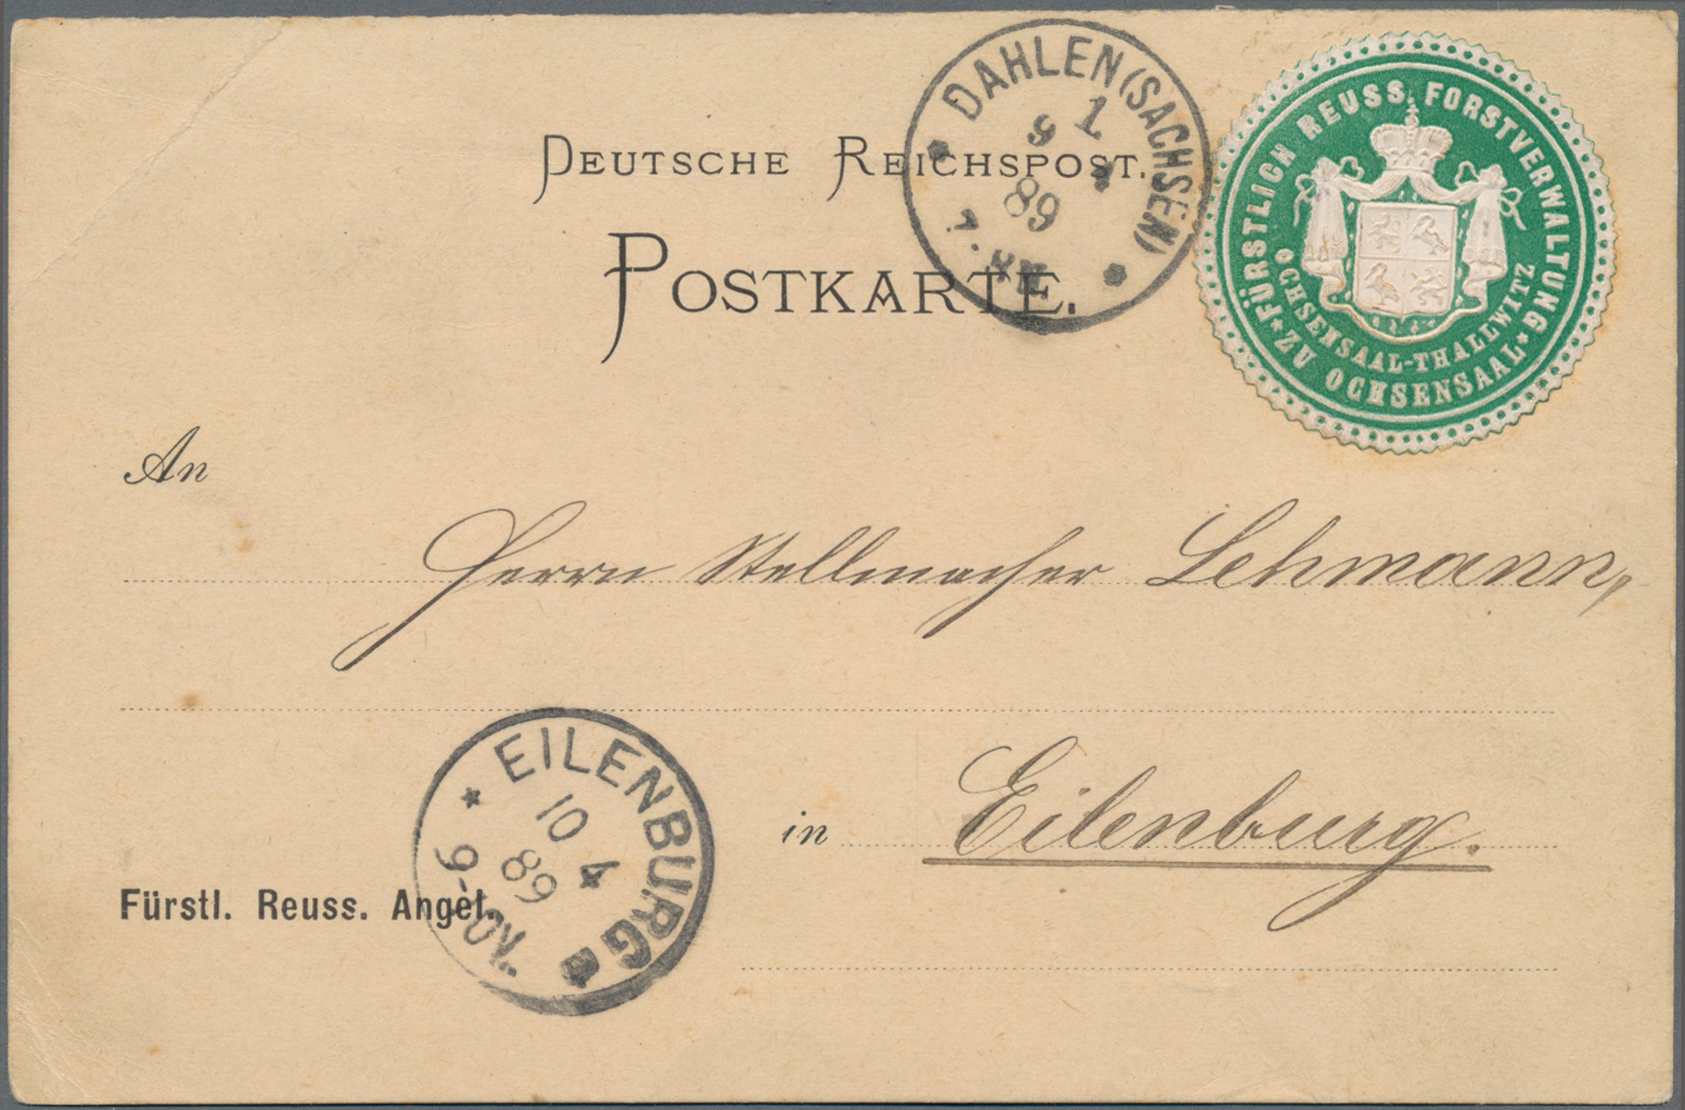 DEUTSCHE REICHSPOST.
POSTKARTE.
DAHLEN (SACHSEN)
89
FÜRSTLICH REUSS. FORSTVERWALTUNG
OCHSENSAAL-THALLWITZ
* ZU OCHSENSAAL *
An
Herrn Stellmacher Lehmann,
in Eilenburg.
Fürstl. Reuss. Angel.
* EILENBURG *
10 4
89
9-10V.